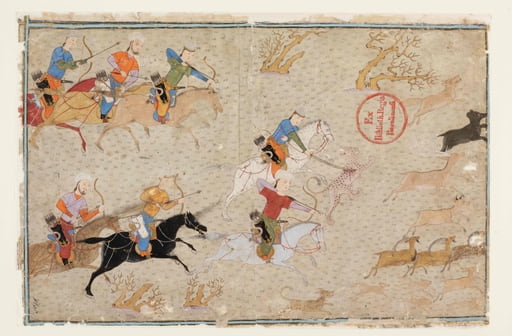 Ex
Biblioth. Regia
Berolinensi.